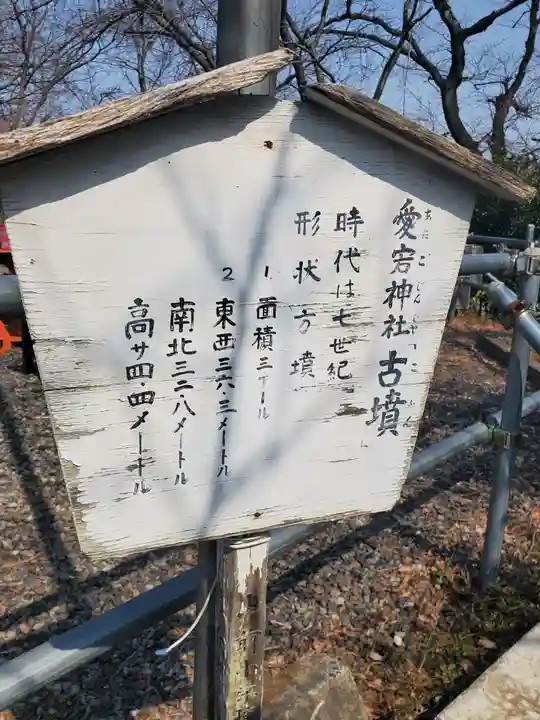 愛宕神社古墳
あたごじんじゃこふん
時代は七世紀
形状方墳
1.面積三アール
2 東西三六・三メートル
南北三三・八メートル
高サ四・四メートル